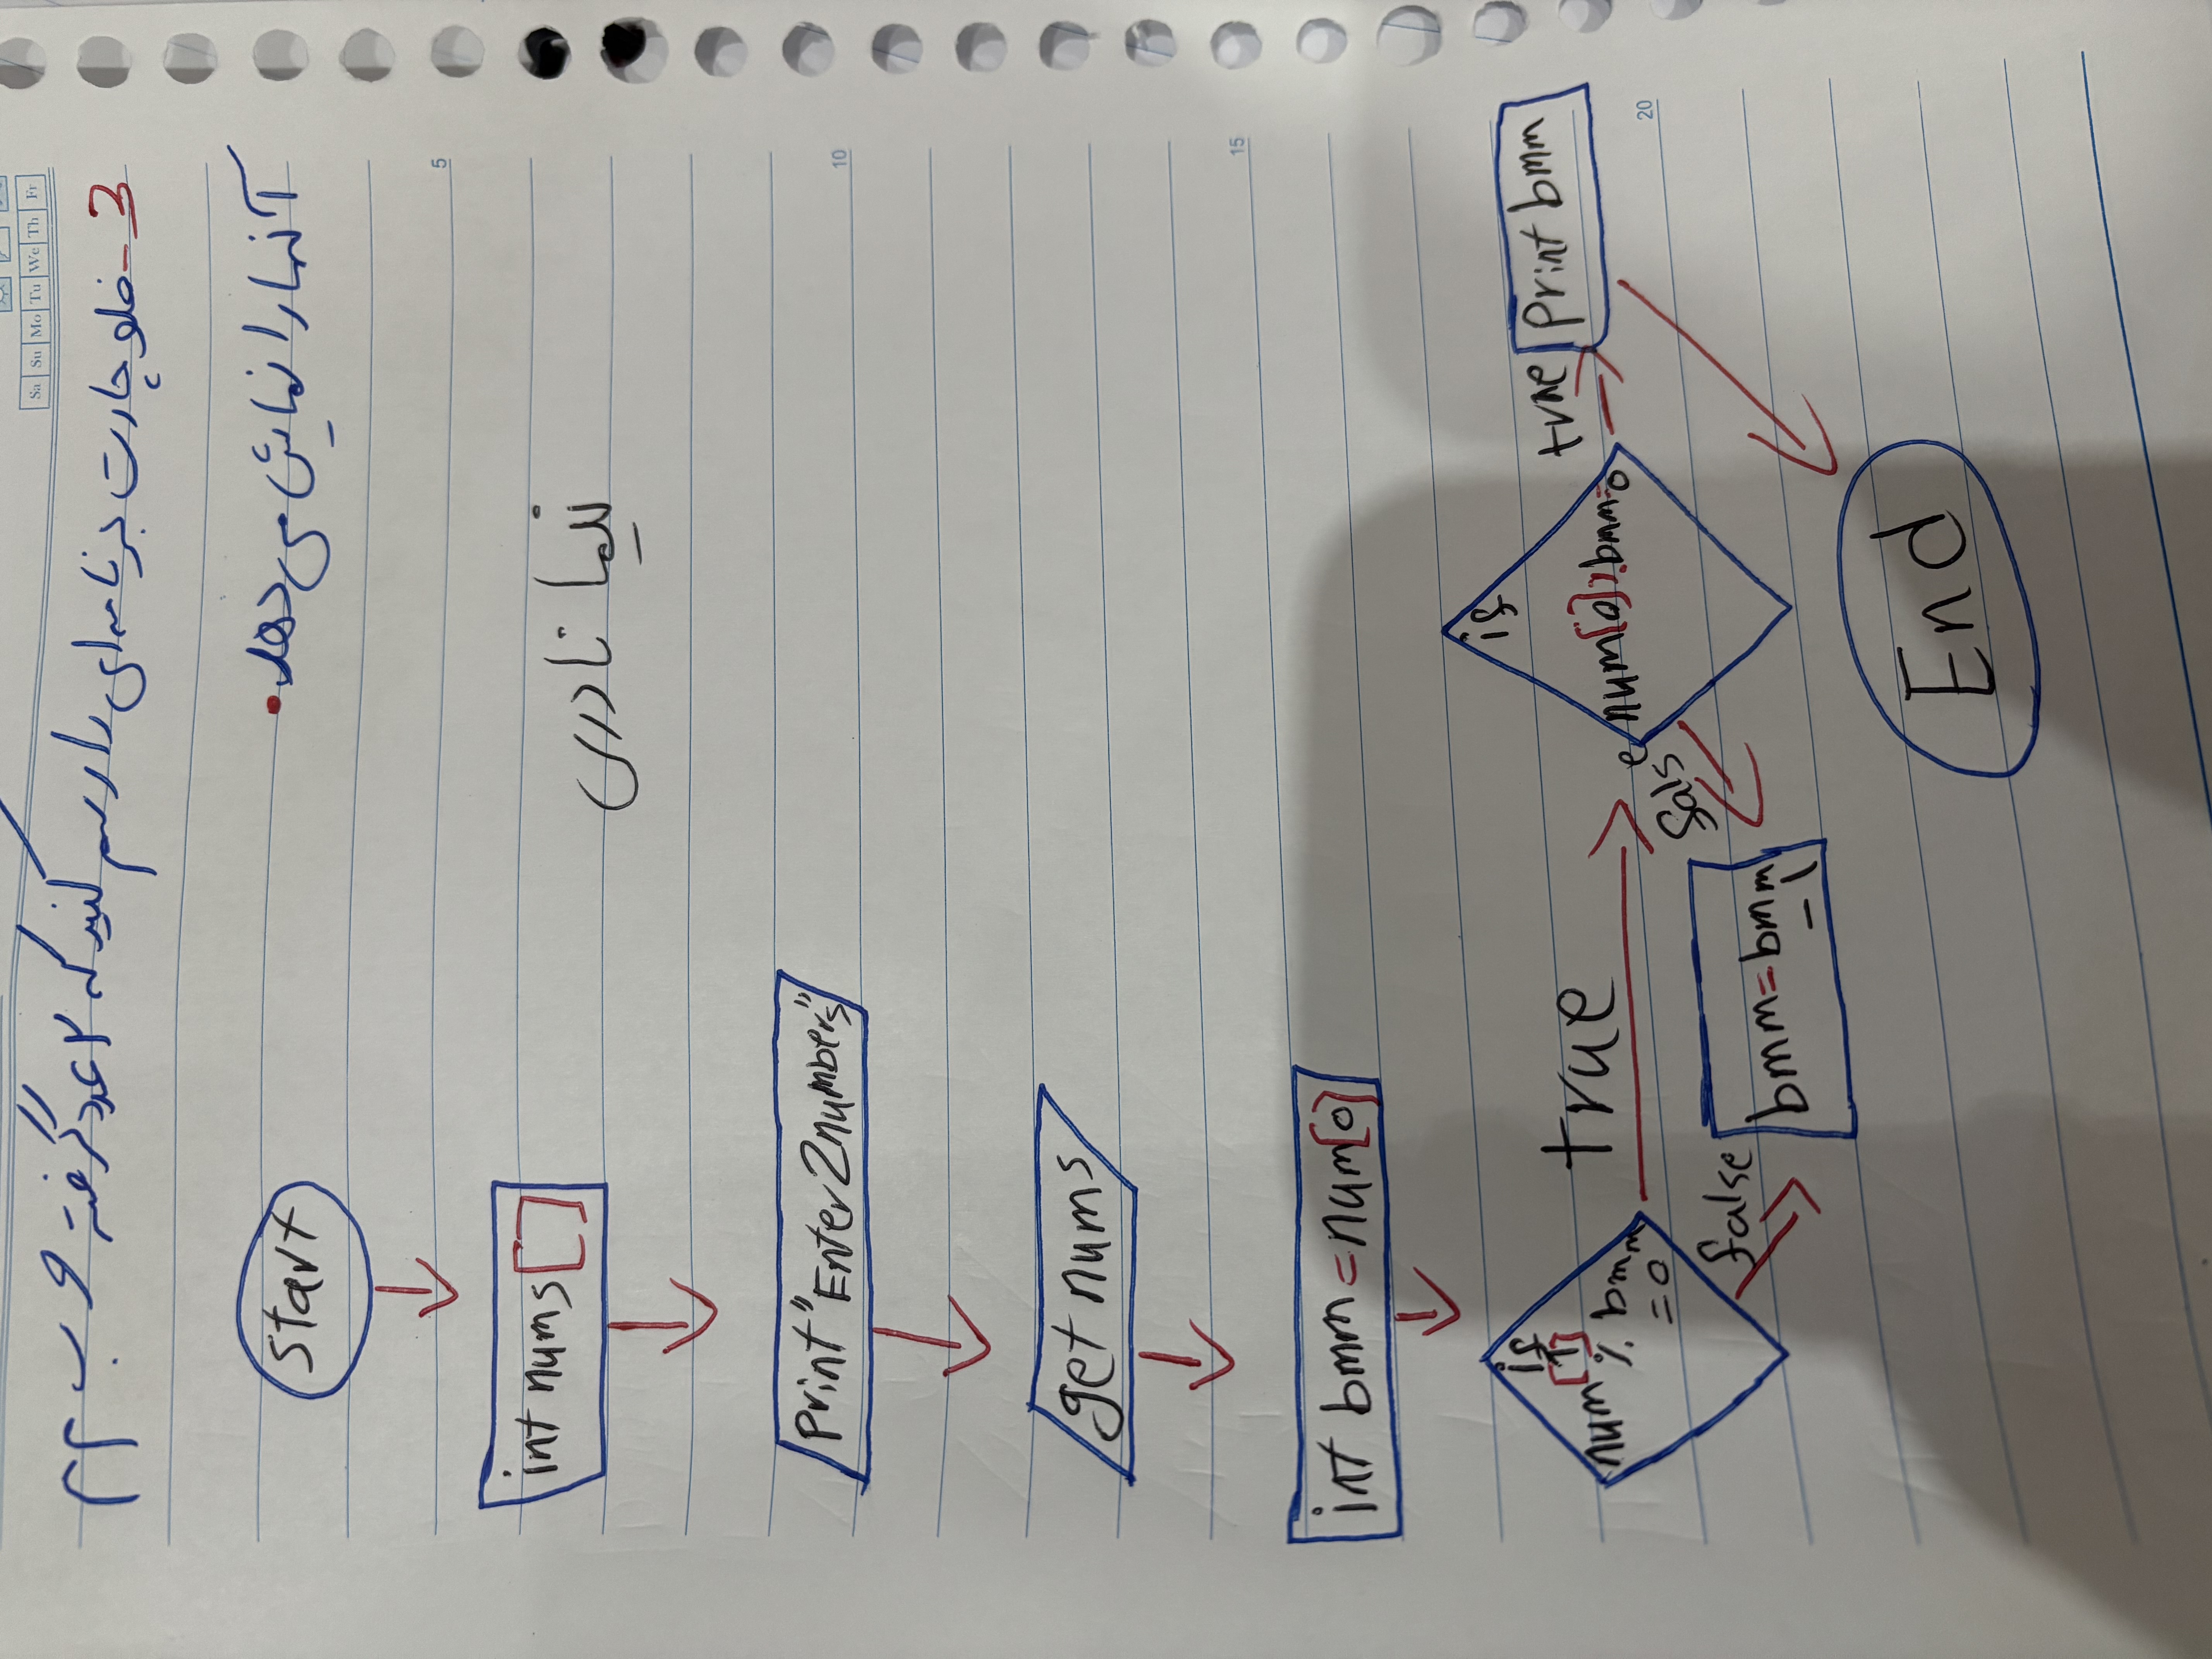 Sa Su Mo Tu We Th Fr
3- فلوچارت برنامه‌ای را رسم کنید که ۲ عدد گرفته و ب م م
آنها را نمایش می‌دهد.
start
int nums[]
5
نیما نادری
print "Enter 2numbers"
10
get nums
15
int bmm = num[0]
if num[1] % bmm = 0
true
if num[0] % bmm = 0
true
print bmm
20
false
bmm = bmm - 1
false
End